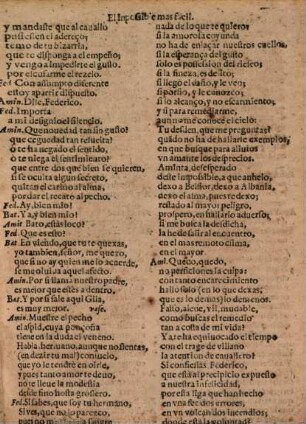 El Imposible mas facil.
y mandaste que al cauallo
pusiessen el adereço;
temo de tu bizarria,
que te disponga al empeño;
y vengo a impedirte el gusto,
por escusarme el rezelo.
Fed. Con assumpto diferente
estoy aparte dispuesto.
Amin. Dile, Federico.
Fed. Importa
a mi designio el silencio.
Amin. Que nouedad tan sin gusto!
que ceguedad tan seuera!
o te ha negado el sentido,
o te niega el sentimiento!
que entre dos que bien se quieren,
si se oculta algun secreto,
quitan el cariño al alma,
por dar el recato al pecho.
Fed. Ay, bien mio!
Bar. Y a, y bien mio!
Amin. Bato, estàs loco?
Fed. Que es esto?
Bat. En viendo, que tu te quexas,
yo tambien, señor, me quexo,
que si no ay quien me lo acuerde,
se me oluida aquel afecto.
Amin. Por si llama nuestro padre,
es mejor que estès a dentro.
Bar. Y por si sale aqui Gila,
es muy mejor. vase.
Amin. Muestre el pecho
el aspid, cuya ponçoña
tiene en la duda el veneno.
Habla, hermano, aunque no sientas,
(en dezàr tu mal) consuelo,
que yo lo tendrè en oirle,
y pues tanto amor te deuo,
no te lleue la modestia
desde fino hasta grossero.
Fed. Si sabes, que soy tu hermano,
Si ves, que no lo parezco,
nada de lo que te quiero;
si la amorosa coyunda
no ha de enlaçar nuestros cuellos,
si la esperança del gusto
solo es possession del riesgo;
si la fineza, es delito;
si llego el daño, y le veo;
si porfio, y le conozco;
si lo alcanço, y no escarmiento,
y si para remediarme,
aun no me conoce el cielo:
Tu desden, que me preguntas?
quando no ha de hallarse exemplos,
de que busque para alluios
vn amante los desprecios.
Aminta, desesperado
desse impossible, a que anhelo,
dexo a Belflor, dexo a Albania,
dexo el alma, pues te dexo;
restado al mayor peligro,
prospero, en hallarlo aduerso,
si me busca la desdicha,
ha de hallarme en el encuentro,
en el mas remoto clima,
en el mayor.
Am. Quedo, quedo,
no perficiones la culpa:
con tanto encarecimiento
hallo solo (en lo que dexas,
que es lo de mas) lo de menos.
Falso, aleue, vil, mudable,
como buscas el remedio
tan a costa de mi vida?
Y a te ha equiuocado el tiempo
con el trage de villano
la atencion de cauallero?
Si confieslas Federico,
que està el precipicio expuesto
a nuestra infelicidad,
por què me huuiste
en vna fee dos errores,